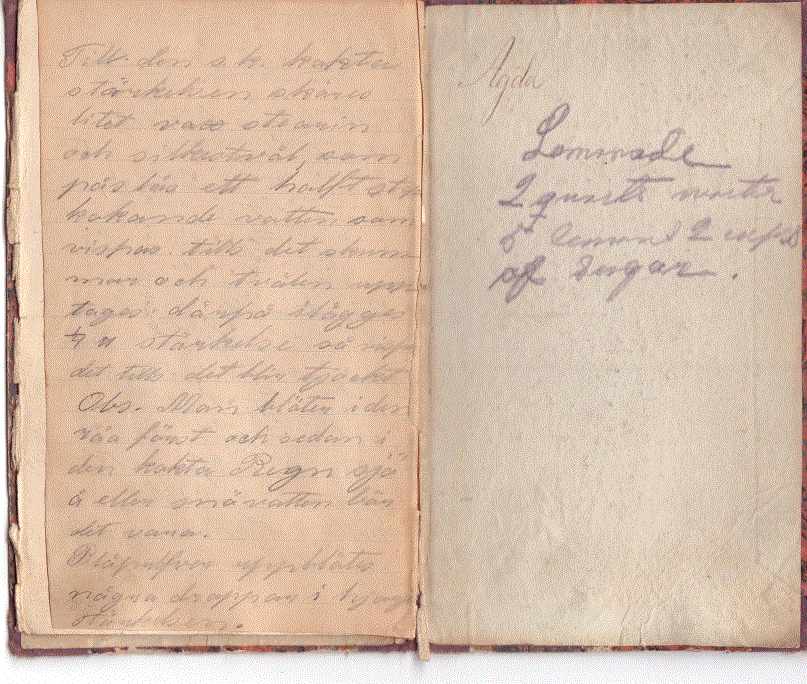 Till den s.k. kokta
stärkelsen skäres
litet vax stearin
och silkestvål, som
påslås ett hälft
kokande vatten som
vispas till det skum
mar och tvålen upp
tages därpå ilägges
stärkelse så
det till det blir tjockt
Obs. Man blöter i den
råa först och sedan i
den kokta Regn sjö
å eller snövatten bör
det vara.
Blåpulver uppblötes
några droppar i
stärkelsen.
Agda
Lemonade
2 quarts water
lemons 2 cups
of sugar.